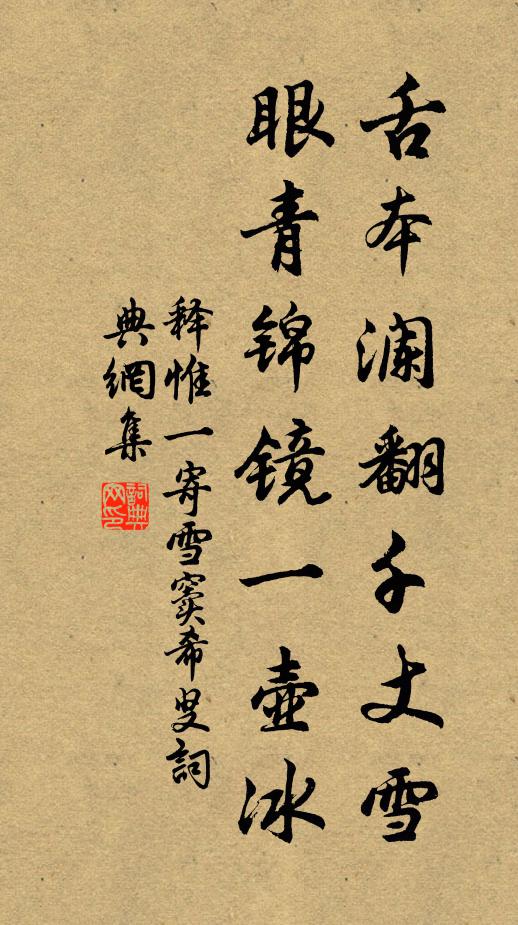 舌本澜翻千丈雪
眼青锦镜一壶冰
释惟一寄雪窦希叟詞
典網集
詞典网印